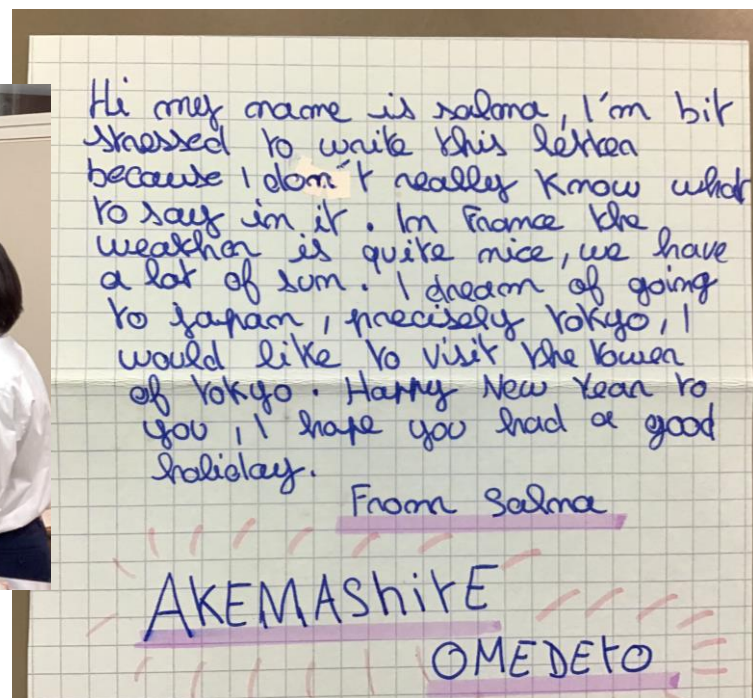 Hi my name is salma, I'm bit
stressed to write this letter
because I don't really know what
to say in it. In France the
weather is quite nice, we have
a lot of sun. I dream of going
to japan, precisely tokyo, I
would like to visit the tower
of tokyo. Happy New Year to
you, I hope you had a good
holiday.
From Salma
AKEMAShitE
OMEDEtO